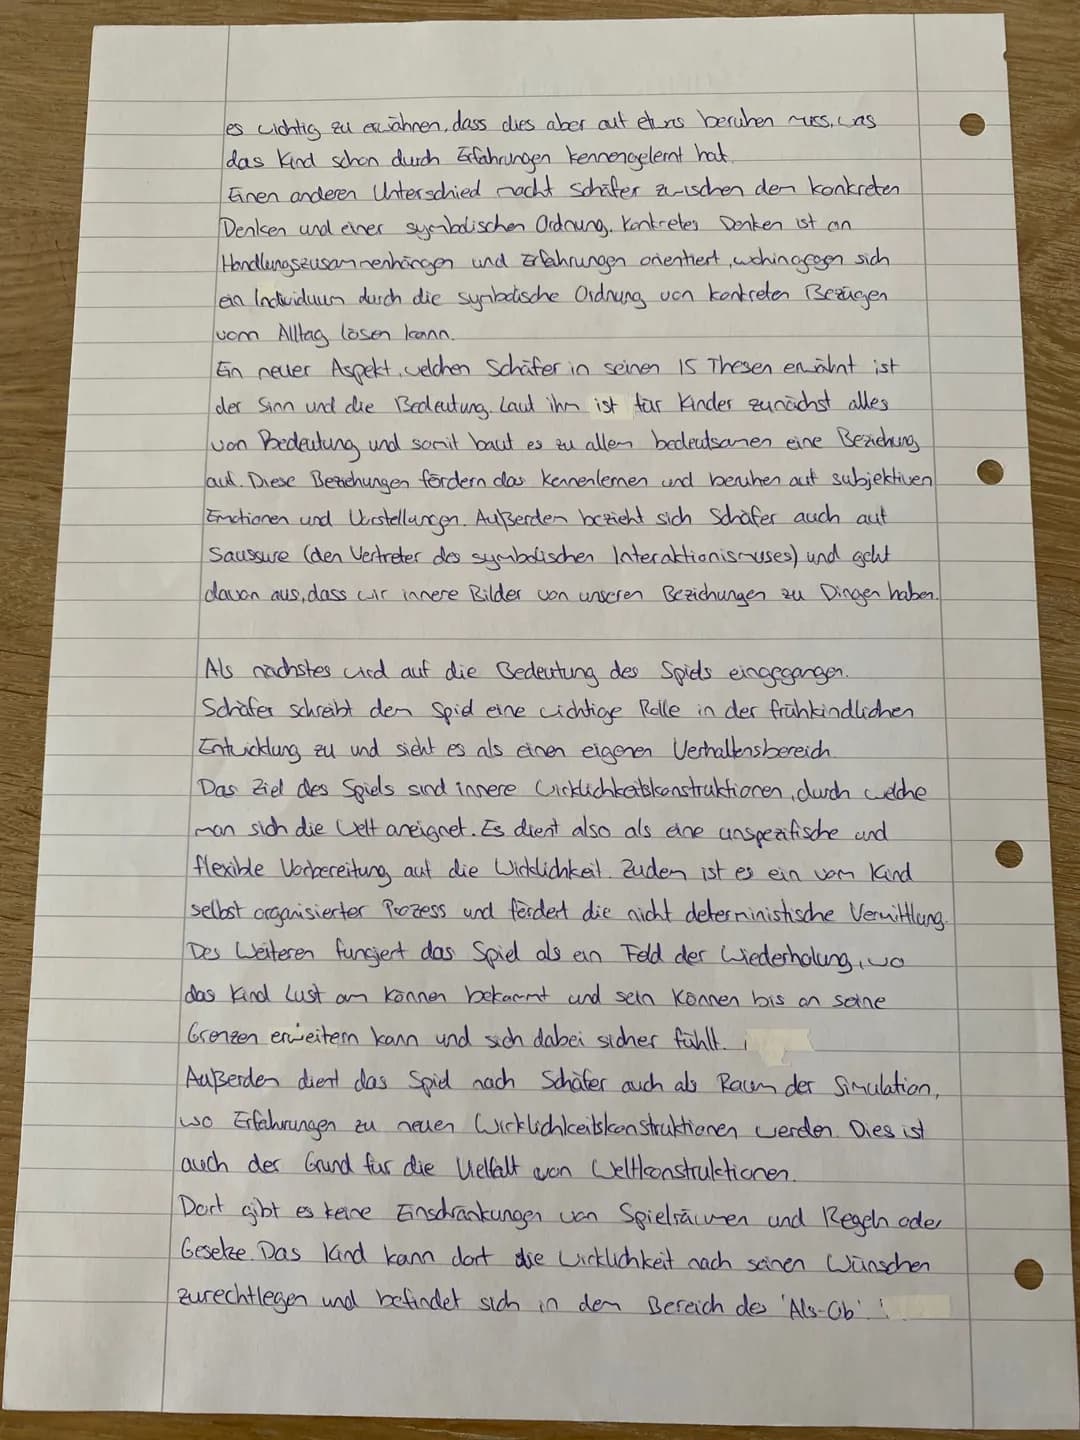 es wichtig zu erwähnen, dass dies aber auf etwas beruhen muss, was
das Kind schon durch Erfahrungen kennengelernt hat.
Einen anderen Unterschied macht Schäfer zwischen dem konkreten
Denken und einer symbolischen Ordnung. Konkretes Denken ist an
Handlungszusammenhängen und Erfahrungen orientiert, wohingegen sich
ein Individuum durch die symbolische Ordnung von konkreten Bezügen
vom Alltag lösen kann.
Ein neuer Aspekt, welchen Schäfer in seinen 15 Thesen erwähnt ist
der Sinn und die Bedeutung. Laut ihm ist für Kinder zunächst alles
von Bedeutung und somit baut es zu allem bedeutsamen eine Beziehung
auf. Diese Beziehungen fördern das Kennenlernen und beruhen auf subjektiven
Emotionen und Vorstellungen. Außerdem bezieht sich Schäfer auch auf
Saussure (den Vertreter des symbolischen Interaktionismuses) und geht
davon aus, dass wir innere Bilder von unseren Beziehungen zu Dingen haben.
Als nächstes wird auf die Bedeutung des Spiels eingegangen.
Schäfer schreibt dem Spiel eine wichtige Rolle in der frühkindlichen
Entwicklung zu und sieht es als einen eigenen Verhaltensbereich.
Das Ziel des Spiels sind innere Wirklichkeitskonstruktionen, durch welche
man sich die Welt aneignet. Es dient also als eine unspezifische und
flexible Vorbereitung auf die Wirklichkeit. Zudem ist es ein vom Kind
selbst organisierter Prozess und fördert die nicht deterministische Vermittlung.
Des Weiteren fungiert das Spiel als ein Feld der Wiederholung, wo
das Kind Lust am Können bekommt und sein Können bis an seine
Grenzen erweitern kann und sich dabei sicher fühlt.
Außerdem dient das Spiel nach Schäfer auch als Raum der Simulation,
wo Erfahrungen zu neuen Wirklichkeitskonstruktionen werden. Dies ist
auch der Grund für die Vielfalt von Weltkonstruktionen.
Dort gibt es keine Einschränkungen von Spielräumen und Regeln oder
Gesetze. Das Kind kann dort die Wirklichkeit nach seinen Wünschen
zurechtlegen und befindet sich in dem Bereich des 'Als-Ob'.